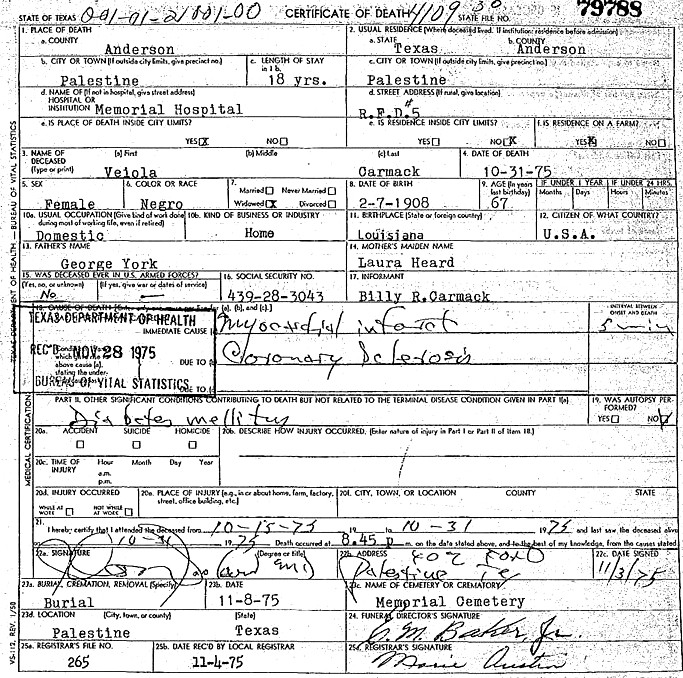 STATE OF TEXAS 001-01-21801-00 CERTIFICATE OF DEATH 4109 30 STATE FILE NO. 79788
1. PLACE OF DEATH
a. COUNTY
Anderson
2. USUAL RESIDENCE (Where deceased lived. If institution: residence before admission)
a. STATE b. COUNTY
Texas Anderson
b. CITY OR TOWN (If outside city limits, give precinct no.) c. LENGTH OF STAY in 1b.
Palestine 18 yrs.
c. CITY OR TOWN (If outside city limits, give precinct no.)
Palestine
d. NAME OF (If not in hospital, give street address)
HOSPITAL OR
INSTITUTION Memorial Hospital
d. STREET ADDRESS (If rural, give location)
R.F.D.#5
e. IS PLACE OF DEATH INSIDE CITY LIMITS?
YES X NO
e. IS RESIDENCE INSIDE CITY LIMITS? f. IS RESIDENCE ON A FARM?
YES NO X YES X NO
3. NAME OF DECEASED (Type or print) (a) First (b) Middle (c) Last 4. DATE OF DEATH
Veiola Carmack 10-31-75
5. SEX 6. COLOR OR RACE 7. Married Never Married 8. DATE OF BIRTH 9. AGE (In years last birthday) IF UNDER 1 YEAR IF UNDER 24 HRS.
Months Days Hours Minutes
Female Negro Widowed X Divorced 2-7-1908 67
10a. USUAL OCCUPATION (Give kind of work done during most of working life, even if retired) 10b. KIND OF BUSINESS OR INDUSTRY 11. BIRTHPLACE (State or foreign country) 12. CITIZEN OF WHAT COUNTRY?
Domestic Home Louisiana U.S.A.
13. FATHER'S NAME 14. MOTHER'S MAIDEN NAME
George York Laura Heard
15. WAS DECEASED EVER IN U.S. ARMED FORCES? 16. SOCIAL SECURITY NO. 17. INFORMANT
(Yes, no, or unknown) (If yes, give war or dates of service)
No — 439-28-3043 Billy R.Carmack
18. CAUSE OF DEATH
INTERVAL BETWEEN ONSET AND DEATH
TEXAS DEPARTMENT OF HEALTH
IMMEDIATE CAUSE Myocardial infarct 5 min
REC'D NOV 28 1975
DUE TO Coronary Sclerosis
above cause (a), stating the under-
BUREAU OF VITAL STATISTICS DUE TO
PART II. OTHER SIGNIFICANT CONDITIONS CONTRIBUTING TO DEATH BUT NOT RELATED TO THE TERMINAL DISEASE CONDITION GIVEN IN PART I(a) 19. WAS AUTOPSY PERFORMED?
Diabetes mellitus YES NO
20a. ACCIDENT SUICIDE HOMICIDE 20b. DESCRIBE HOW INJURY OCCURRED. (Enter nature of injury in Part I or Part II of Item 18.)
20c. TIME OF INJURY Hour Month Day Year
a.m.
p.m.
20d. INJURY OCCURRED 20e. PLACE OF INJURY (e.g., in or about home, farm, factory, street, office building, etc.) 20f. CITY, TOWN, OR LOCATION COUNTY STATE
WHILE AT WORK NOT WHILE AT WORK
21. I hereby certify that I attended the deceased from 10-15-75 19 to 10-31 1975 and last saw the deceased alive
10-31 1975 Death occurred at 8.45 p m. on the date stated above, and to the best of my knowledge, from the causes stated
22a. SIGNATURE (Degree or title) 22b. ADDRESS 22c. DATE SIGNED
Palestine Tx 11/3/75
23a. BURIAL, CREMATION, REMOVAL (Specify) 23b. DATE 23c. NAME OF CEMETERY OR CREMATORY
Burial 11-8-75 Memorial Cemetery
23d. LOCATION (City, town, or county) (State) 24. FUNERAL DIRECTOR'S SIGNATURE
Palestine Texas C. M. Baker, Jr.
25a. REGISTRAR'S FILE NO. 25b. DATE REC'D BY LOCAL REGISTRAR 25c. REGISTRAR'S SIGNATURE
265 11-4-75 Marie Austin
TEXAS DEPARTMENT OF HEALTH — BUREAU OF VITAL STATISTICS
MEDICAL CERTIFICATION
VS-112, REV. 1/58